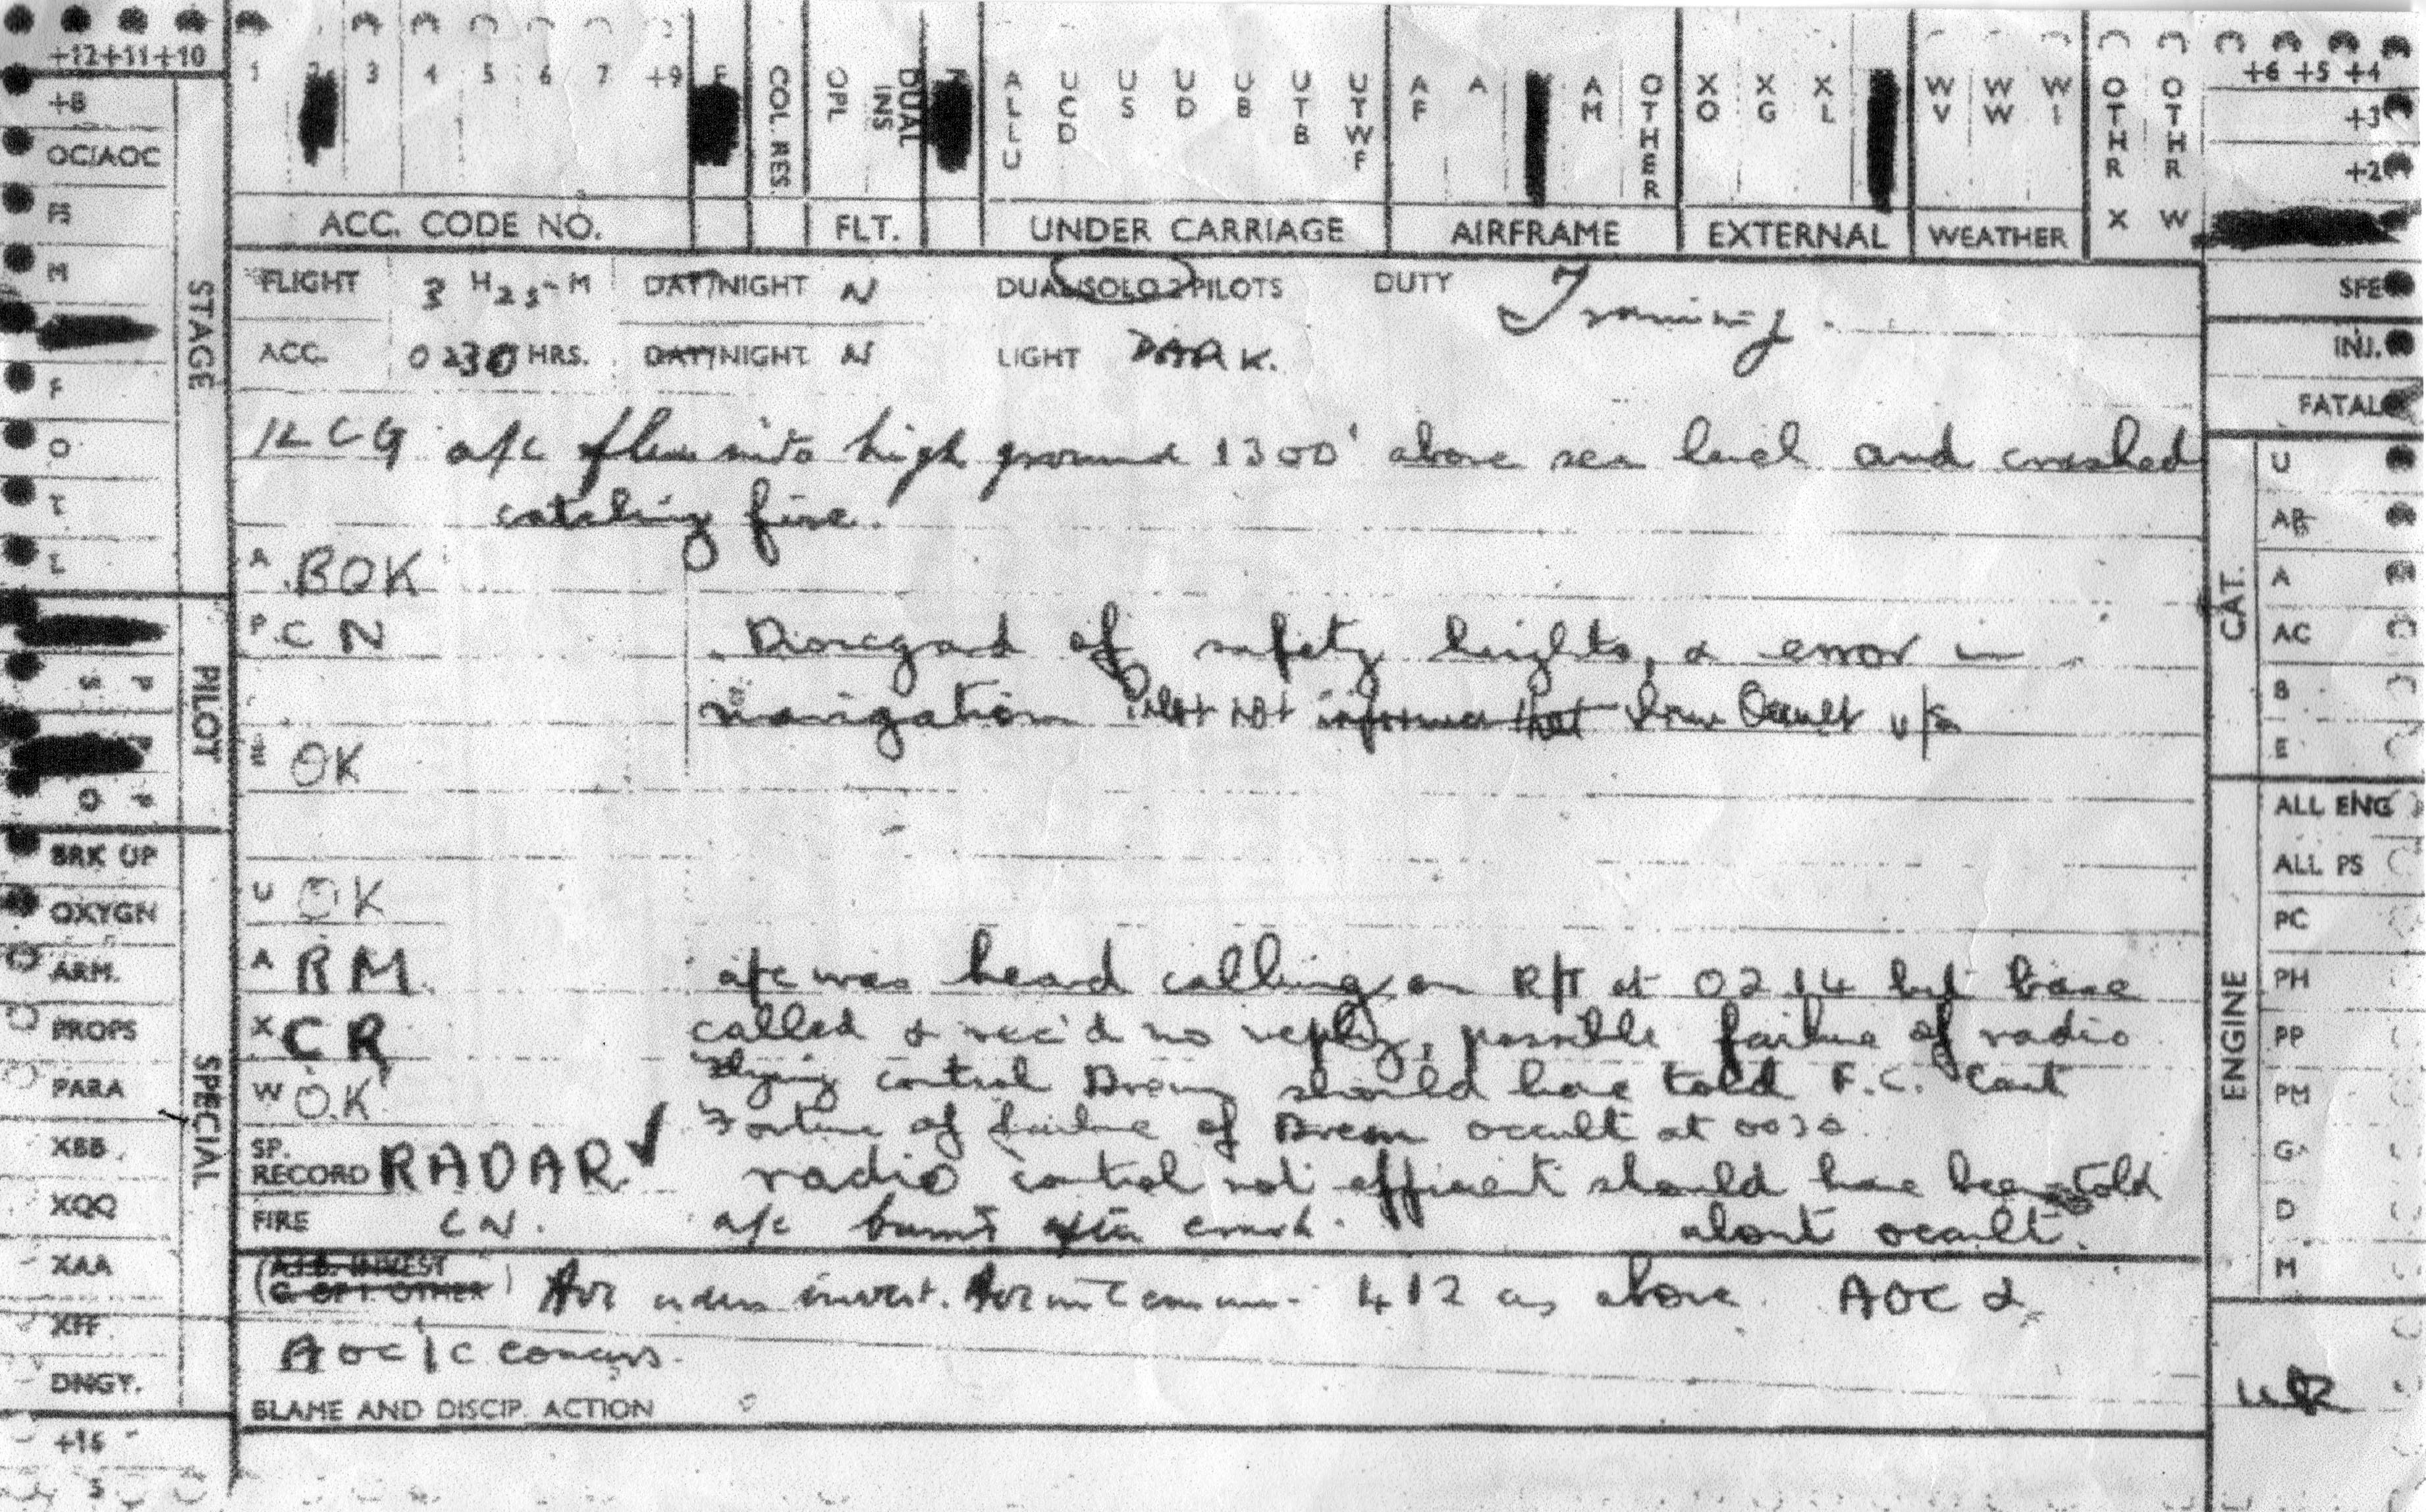 +12+11+10
1 2 3 4 5 6 7 +9 F
COL. RES.
OPL INS DUAL
ALLU UCD US UD UB UTB UTWF
AF A AM OTHER
XO XG XL
WV WW WI
OTHR X OTHR W
+6 +5 +4
+3
+2
ACC. CODE NO. FLT. UNDER CARRIAGE AIRFRAME EXTERNAL WEATHER
+8
OC/AOC
FS
M
F
O
T
L
STAGE
PILOT
P S
P O
SPECIAL
BRK UP
OXYGN
ARM.
PROPS
PARA
XBB
XQQ
XAA
XFF
DNGY.
+16
FLIGHT 3 H 25 M DAY/NIGHT N DUAL/SOLO 2 PILOTS DUTY Training.
ACC. 0230 HRS. DAY/NIGHT N LIGHT DARK.
a/c flew into high ground 1300' above sea level and crashed
catching fire.
A BOK
P CN Disregard of safety heights, & error in
navigation Pilot not informed that Drem Occult u/s
OK
U OK
A RM. a/c was heard calling on R/T at 0214 but base
X CR called & rec'd no reply, possible failure of radio
W O.K Flying control Drem should have told F.C. East
Fortune of failure of Drem occult at
SP. RECORD RADAR ✓ radio control not efficient should have been told
FIRE CN. a/c burnt after crash. about occult.
(A.I.B. INVEST
C. OF I OTHER) invest. 412 as above. AOC &
AOC/C concurs.
BLAME AND DISCIP. ACTION
SFE
INJ.
FATAL
CAT.
U
AR
A
AC
B
E
ENGINE
ALL ENG
ALL PS
PC
PH
PP
PM
G
D
M